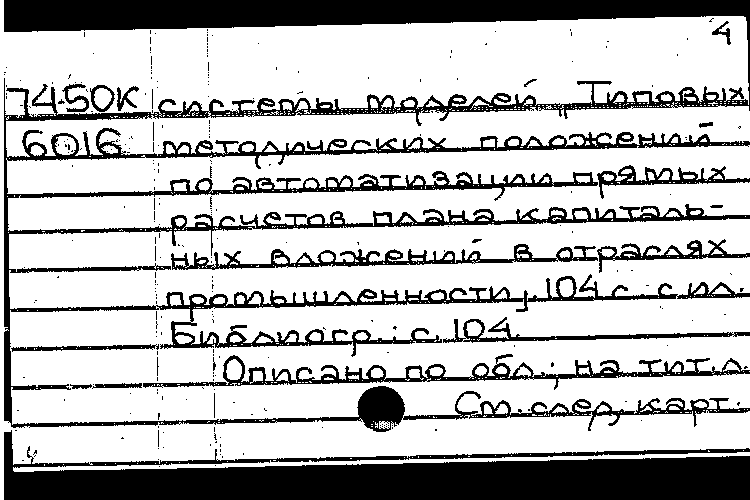 4
7450К системы моделей „Типовых
6016 методических положений
по автоматизации прямых
расчетов плана капиталь-
ных вложений в отраслях
промышленности, 104 с. с ил.
Библиогр.: с. 104.
Описано по обл.; на тит.л.
См. след. карт.
4